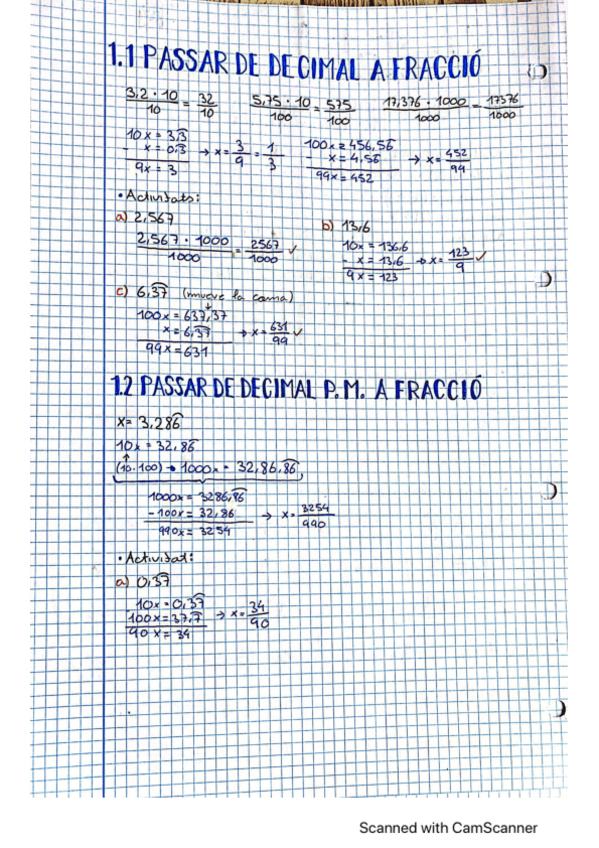 1.1 PASSAR DE DECIMAL A FRACCIÓ
3,2 · 10 / 10 = 32 / 10    5,75 · 10 / 100 = 575 / 100    17,376 · 1000 / 1000 = 17376 / 1000
10x = 3,3̂    100x = 456,56̂
- x = 0,3̂ → x = 3/9 = 1/3    - x = 4,56̂ → x = 452/99
9x = 3    99x = 452
• Activitats:
a) 2,567    b) 13,6
2,567 · 1000 / 1000 = 2567 / 1000 ✓    10x = 136,6
- x = 13,6 → x = 123/9 ✓
9x = 123
c) 6,37̂ (mueve la coma)
100x = 637,37
x = 6,37̂ → x = 631/99 ✓
99x = 631
1.2 PASSAR DE DECIMAL P.M. A FRACCIÓ
x = 3,286̂
10x = 32,86̂
(10·100) → 1000x = 32,86,86̂
1000x = 3286,86̂
- 100x = 32,86 → x = 3254/990
990x = 3254
• Activitat:
a) 0,37̂
10x = 0,37̂
100x = 37,7̂ → x = 34/90
90x = 34
Scanned with CamScanner